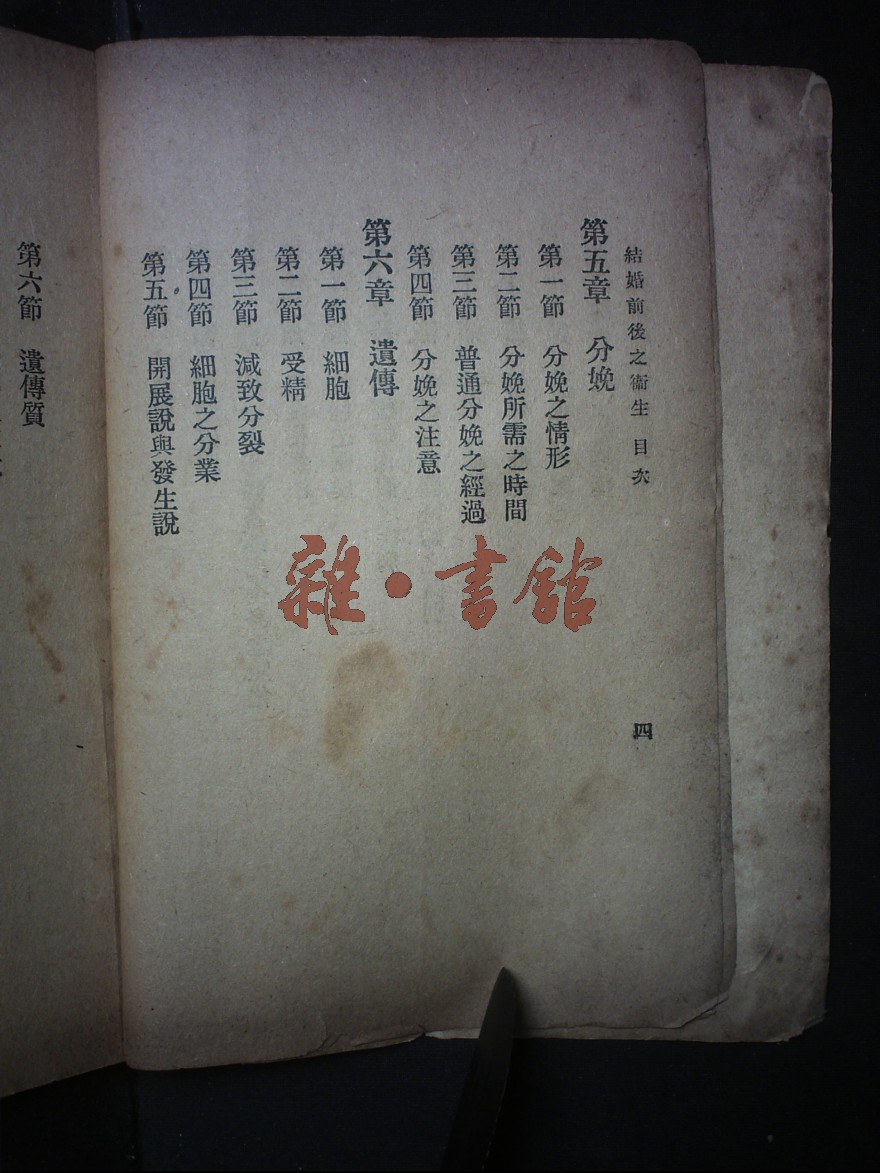 結婚前後之衞生 目次
四
第五章 分娩
第一節 分娩之情形
第二節 分娩所需之時間
第三節 普通分娩之經過
第四節 分娩之注意
第六章 遺傳
第一節 細胞
第二節 受精
第三節 減致分裂
第四節 細胞之分業
第五節 開展說與發生說
第六節 遺傳質
雜•書館